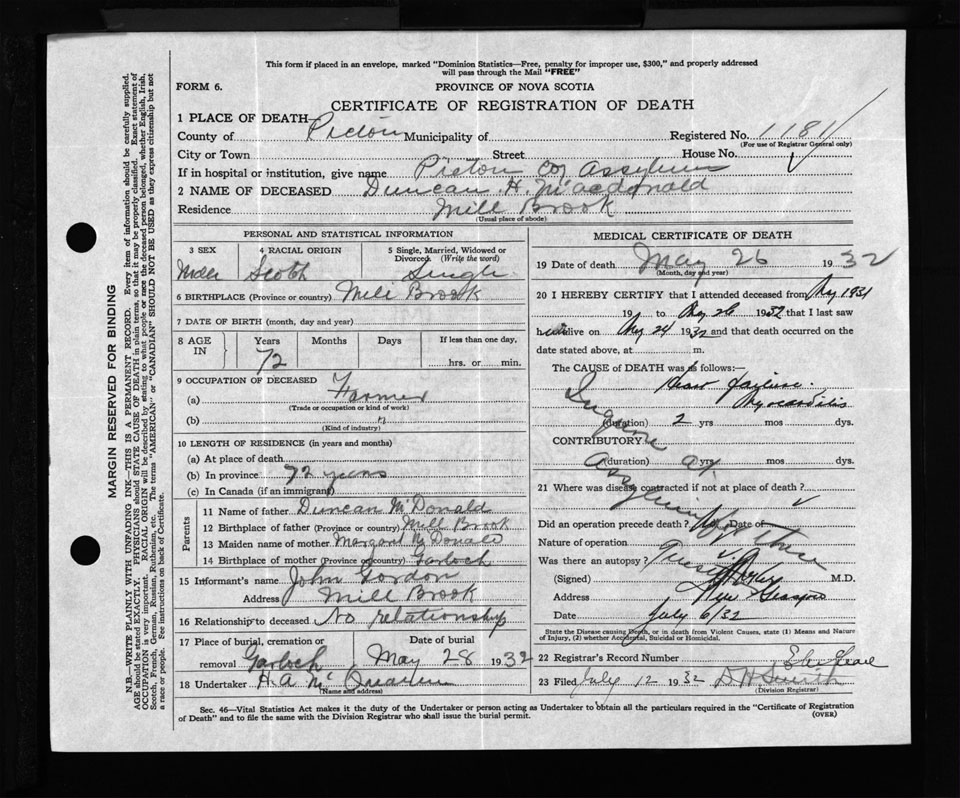 This form if placed in an envelope, marked "Dominion Statistics—Free, penalty for improper use, $300," and properly addressed
will pass through the Mail "FREE"
FORM 6.
PROVINCE OF NOVA SCOTIA
CERTIFICATE OF REGISTRATION OF DEATH
1 PLACE OF DEATH
County of Pictou Municipality of Registered No. 1181
(For use of Registrar General only)
City or Town Street House No.
If in hospital or institution, give name Picton Co Assylum
2 NAME OF DECEASED Duncan H. Macdonald
Residence Mill Brook
(Usual place of abode)
PERSONAL AND STATISTICAL INFORMATION
3 SEX 4 RACIAL ORIGIN 5 Single, Married, Widowed or Divorced. (Write the word)
Male Scotch Single
6 BIRTHPLACE (Province or country) Mill Brook
7 DATE OF BIRTH (month, day and year)
8 AGE IN Years Months Days If less than one day,
72 hrs. or min.
9 OCCUPATION OF DECEASED
(a) Farmer
(Trade or occupation or kind of work)
(b)
(Kind of industry)
10 LENGTH OF RESIDENCE (in years and months)
(a) At place of death
(b) In province 72 years
(c) In Canada (if an immigrant)
Parents
11 Name of father Duncan McDonald
12 Birthplace of father (Province or country) Mill Brook
13 Maiden name of mother Margaret McDonald
14 Birthplace of mother (Province or country) Garloch
15 Informant's name John Gordon
Address Mill Brook
16 Relationship to deceased No relationship
17 Place of burial, cremation or removal Garloch Date of burial May 28 1932
18 Undertaker H. A. Mc
(Name and address)
MEDICAL CERTIFICATE OF DEATH
19 Date of death May 26 1932
(Month, day and year)
20 I HEREBY CERTIFY that I attended deceased from 1931
19 to May 26 1932 that I last saw
h alive on May 24 1932 and that death occurred on the
date stated above, at m.
The CAUSE OF DEATH was as follows:—
Heart failure
Myocarditis
(duration) 2 yrs mos dys.
CONTRIBUTORY
(duration) yrs mos dys.
21 Where was disease contracted if not at place of death?
Did an operation precede death? No Date of
Nature of operation
Was there an autopsy?
(Signed) M.D.
Address New Glasgow
Date July 6/32
State the Disease causing Death, or in death from Violent Causes, state (1) Means and Nature
of Injury, (2) whether Accidental, Suicidal or Homicidal.
22 Registrar's Record Number
23 Filed July 12 1932 D H Smith
(Division Registrar)
Sec. 46—Vital Statistics Act makes it the duty of the Undertaker or person acting as Undertaker to obtain all the particulars required in the "Certificate of Registration
of Death" and to file the same with the Division Registrar who shall issue the burial permit.
(OVER)
MARGIN RESERVED FOR BINDING
N.B.—WRITE PLAINLY WITH UNFADING INK—THIS IS A PERMANENT RECORD. Every item of information should be carefully supplied.
AGE should be stated EXACTLY. PHYSICIANS should STATE CAUSE OF DEATH in plain terms, so that it may be properly classified. Exact statement of
OCCUPATION is very important. RACIAL ORIGIN will be described by stating to what people or race the deceased person belonged, whether English, Irish,
Scotch, French, German, Russian, Ruthenian, etc. The terms "AMERICAN" or "CANADIAN" SHOULD NOT BE USED as they express citizenship but not
a race or people. See instructions on back of Certificate.